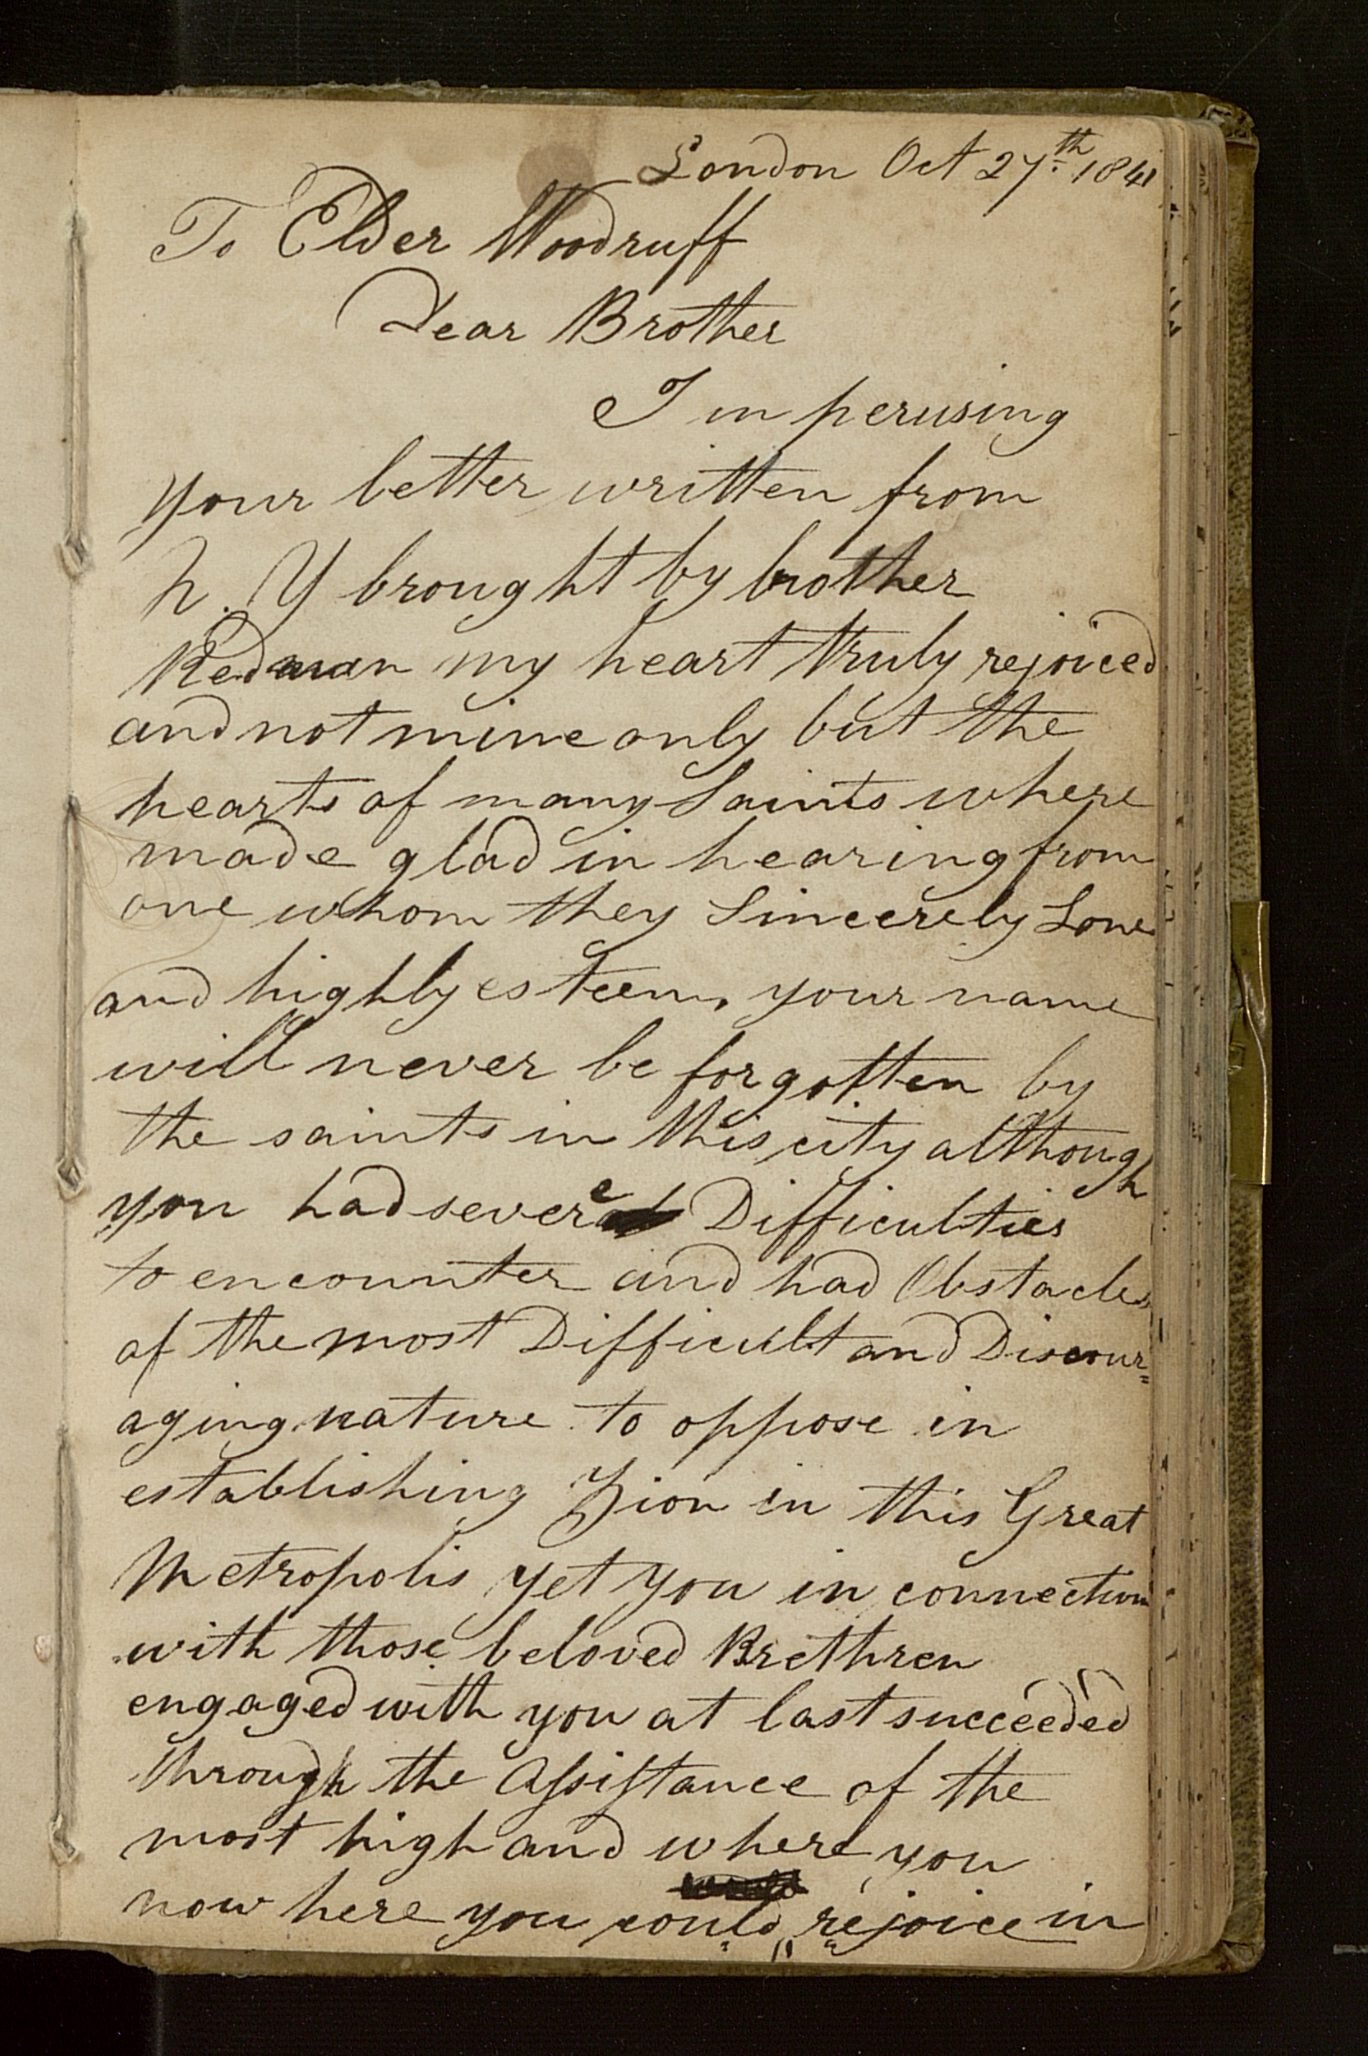 London Oct 27th 1841
To Elder Woodruff
Dear Brother
I in perusing
your letter written from
N. Y brought by brother
Redman my heart truly rejoiced
and not mine only but the
hearts of many Saints where
made glad in hearing from
one whom they Sincerely Love
and highly esteem, your name
will never be forgotten by
the saints in this city although
you had severe Difficulties
to encounter and had Obstacles
of the most Difficult and Discour=
aging nature to oppose in
establishing Zion in this Great
Metropolis yet you in connection
with those beloved Brethren
engaged with you at last succeeded
through the Assistance of the
most high and where you
now here you could rejoice in